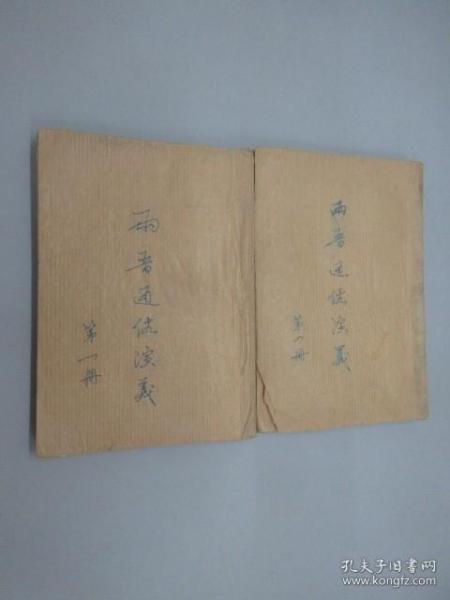 两晋通俗演义
第一册
两晋通俗演义
第一册
孔夫子旧书网
www.kongfz.com